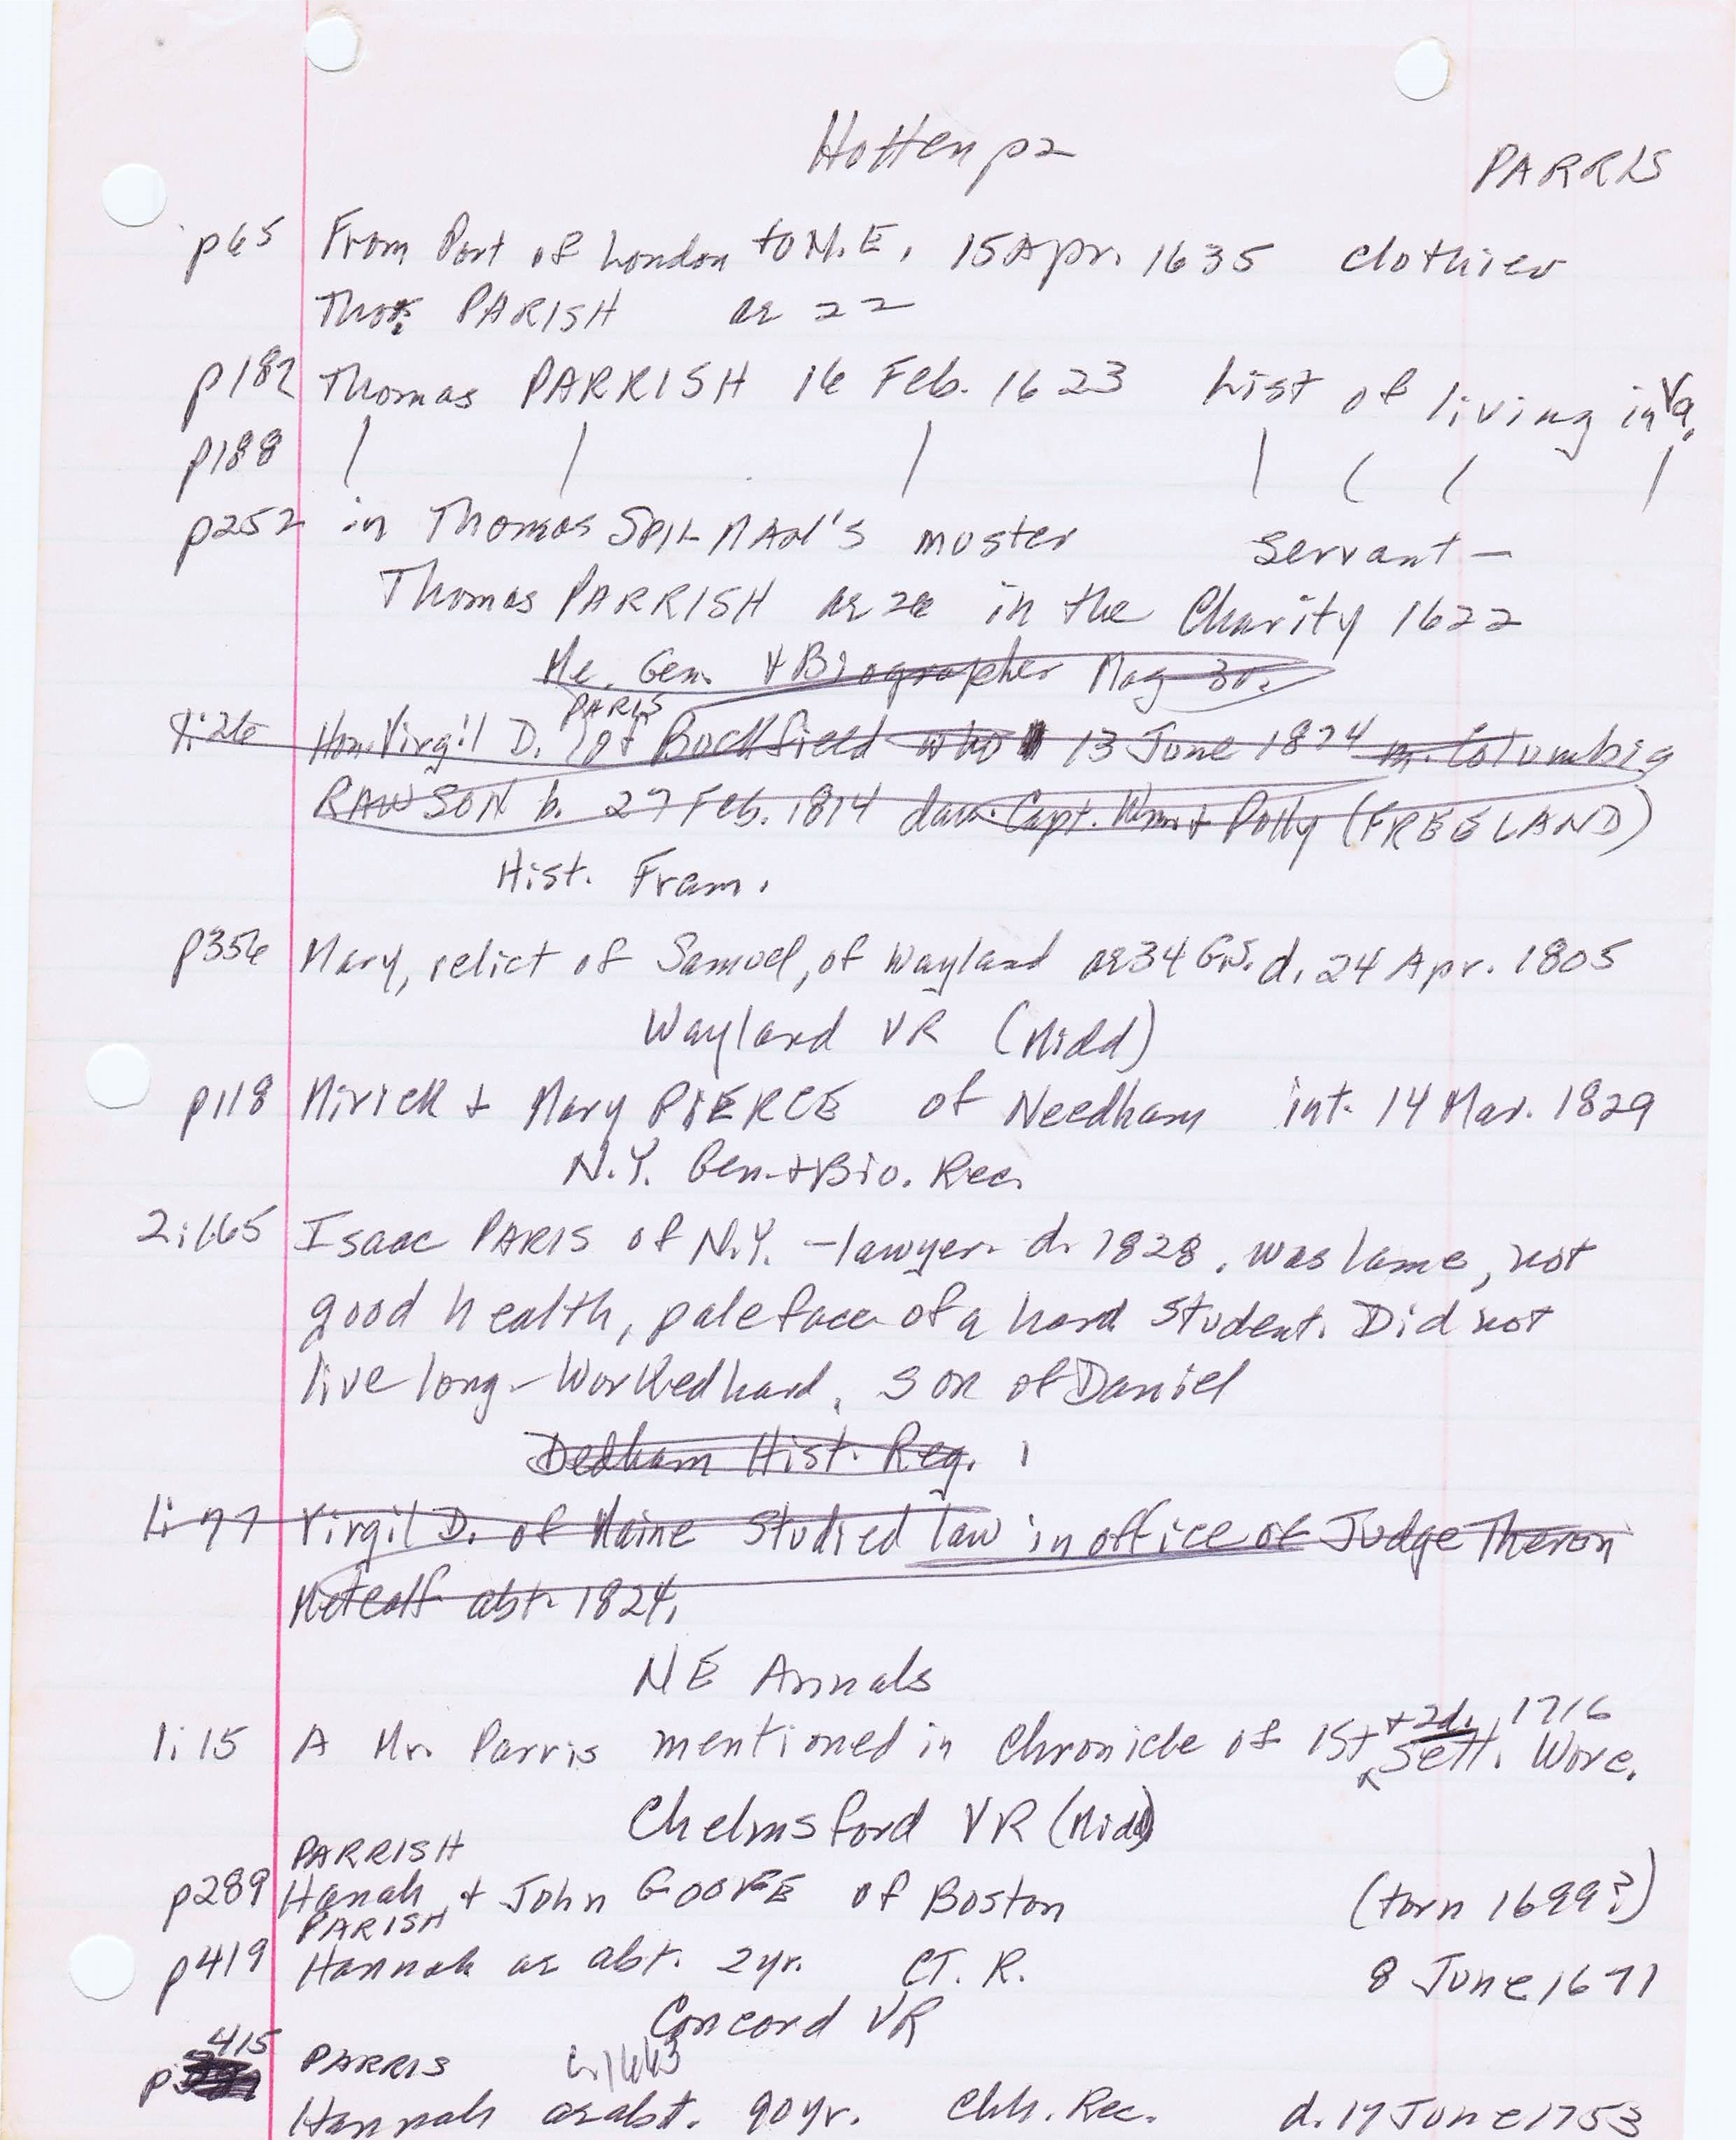 Hotten p2
PARRIS
p65 From Port of London to N.E. 15 Apr. 1635 clothier
Thos. PARISH ae 22
p182 Thomas PARRISH 16 Feb. 1623 List of living in Va.
p188
p252 in Thomas SPILMAN's muster servant —
Thomas PARRISH ae 26 in the Charity 1622
Me. Gen. & Biographer Mag
PARIS
1:26 Hon. Virgil D. of Buckfield who 13 June 1874 m. Columbia
RAWSON b. 27 Feb. 1814 dau. Capt. Wm. & Polly (FREELAND)
Hist. Fram.
p356 Mary, relict of Samuel, of Wayland ae 34 G.S. d. 24 Apr. 1805
Wayland VR (Midd)
p118 Mirick & Mary PIERCE of Needham int. 14 Mar. 1829
N.Y. Gen. + Bio. Rec.
2:165 Isaac PARIS of N.Y. - lawyer d. 1828. was lame, not
good health, pale face of a hard student. Did not
live long - Worked hard. son of Daniel
Dedham Hist. Reg. 1
1:77 Virgil D. of Maine Studied law in office of Judge Theron
Metcalf abt. 1824.
NE Annals
+ 2d. 1716
1:15 A Mr. Parris mentioned in Chronicle of 1st Sett. Worc.
Chelmsford VR (Midd)
PARRISH
p289 Hanah & John GOOVE of Boston (torn 1699?)
PARISH
p419 Hannah ae abt. 2 yr. CT. R. 8 June 1671
Concord VR
415 PARRIS 1663
p Hannah ae abt. 90 yr. Chh. Rec. d. 17 June 1753